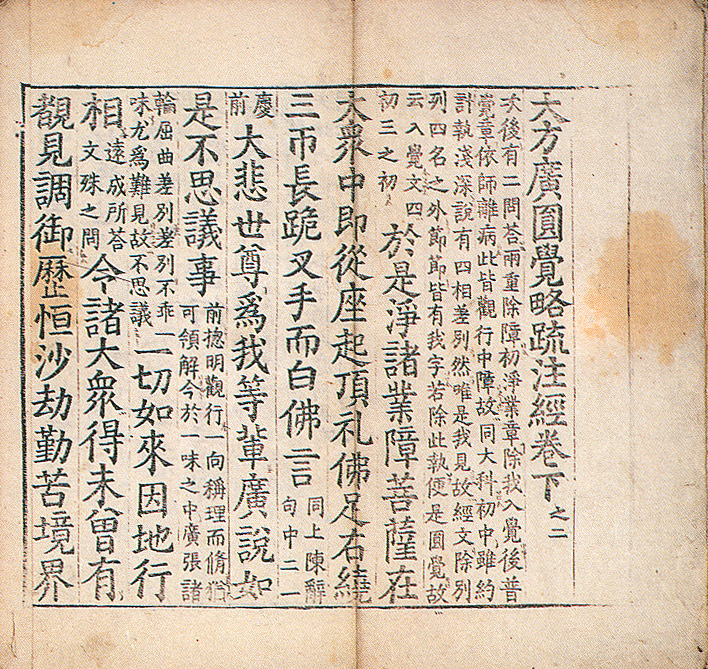 大方廣圓覺略䟽注經卷下之二
次後有二問荅兩重除障初淨業章除我入覺後普
覺章依師離病此皆觀行中障故同大科初中雖約
計執淺深說有四相差別然唯是我見故經文除別
列四名之外節節皆有我字若除此執便是圓覺故
云入覺文四
初三之初
於是淨諸業障菩薩在
大衆中即從座起頂礼佛足右繞
三帀長跪叉手而白佛言
同上陳辭
句中二一
慶
前
大悲世尊爲我等輩廣說如
是不思議事
前揔明觀行一向稱理而脩猶
可領解今於一味之中廣張諸
輪屈曲差別差別不乖一
味尤爲難見故不思議
一切如來因地行
相
遠成所荅
文殊之問
今諸大衆得未曾有
覩見調御歷恒沙劫勤苦境界